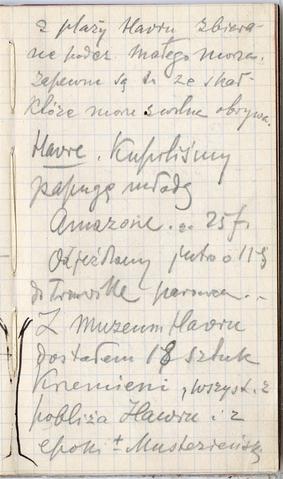 z plaży Havru zbiera-
ne podcz. małego morza.
zapewne są to ze skał
które morze zwolna obrywa.
Havre. Kupoliśmy
papugę młodą
Amazone za 25 f.
Odjeżdżamy jutro o 11 g
do Trouville parowcem. -
Z Muzeum Havru
dostałem 18 sztuk
Kremieni, wszyst. z
pobliża Hawru i z
epoki ± Musterieńsk